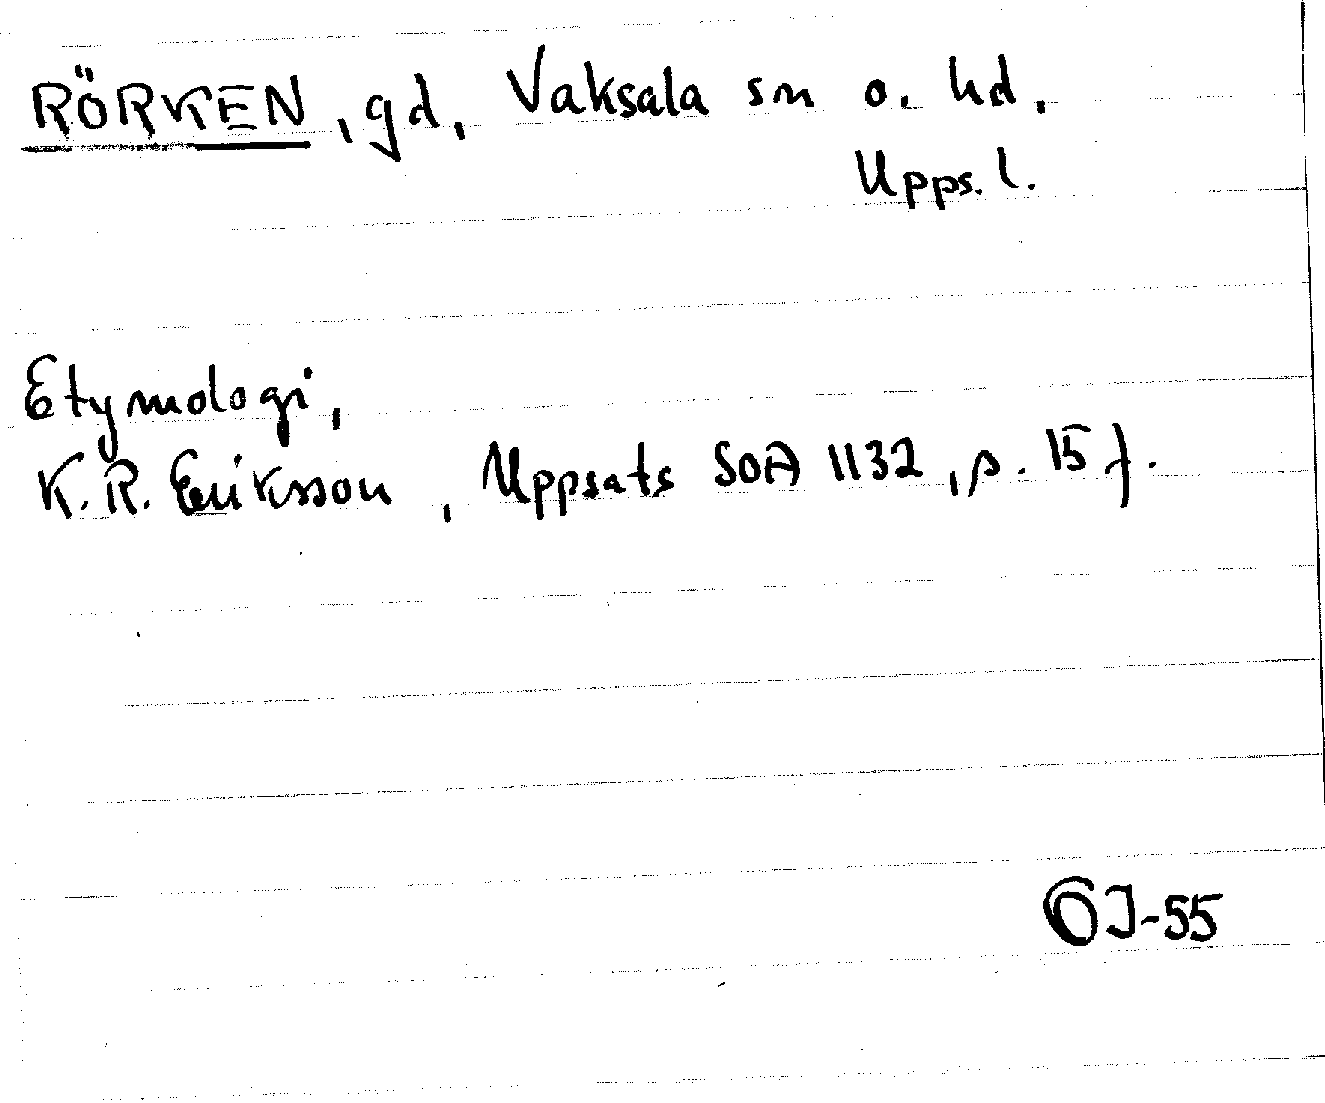 RÖRKEN, gd, Vaksala sn o. hd.
Upps. l.
Etymologi,
K. R. Eriksson, Uppsats SOA 1132, p. 15 f.
OJ-55